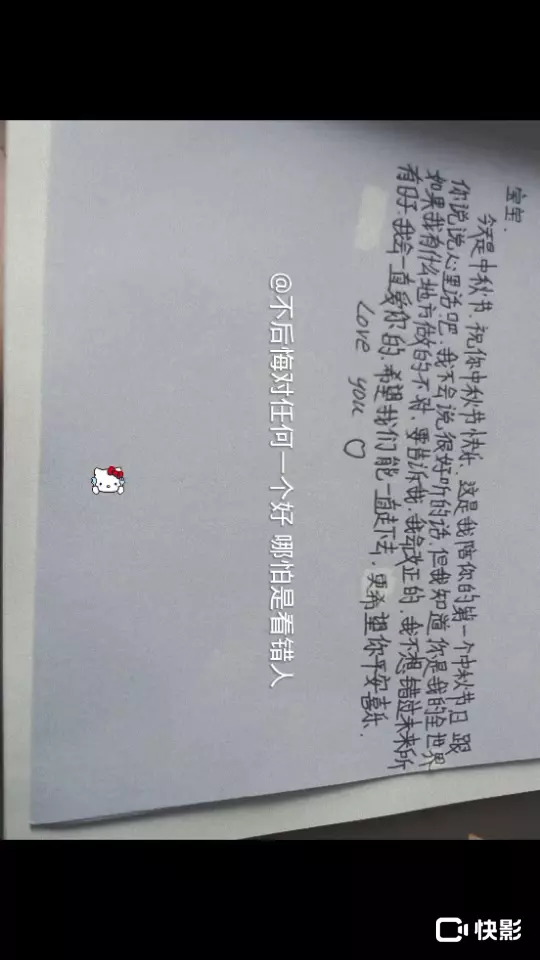 宝宝.
今天是中秋节,祝你中秋节快乐,这是我陪你的第一个中秋节日 跟
你说说心里话吧,我不会说很好听的话,但我知道 你是我的全世界
如果我有什么地方做的不对,要告诉我,我会改正的,我不想错过未来所
有日子,我会一直爱你的,希望我们能一直走下去,更希望你平安喜乐.
Love you ♡
@不后悔对任何一个好 哪怕是看错人
快影